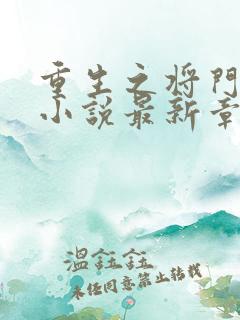 重生之将門
小説最新章
溫鈺鈺
未经同意禁止转载